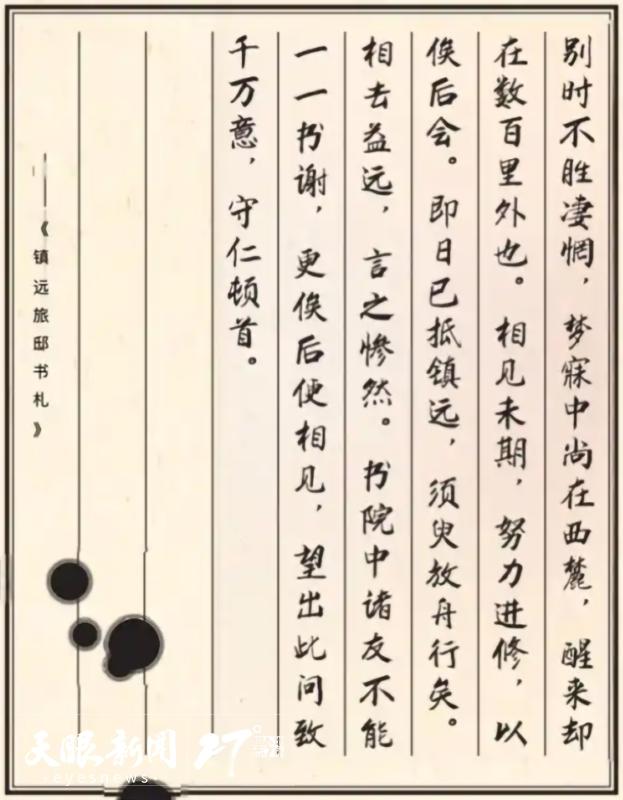 别时不胜凄惘，梦寐中尚在西麓，醒来却
在数百里外也。相见未期，努力进修，以
俟后会。即日已抵镇远，须臾放舟行矣。
相去益远，言之惨然。书院中诸友不能
一一书谢，更俟后便相见，望出此问致
千万意，守仁顿首。
——《镇远旅邸书札》
天眼新闻 27°
·eyesnews·